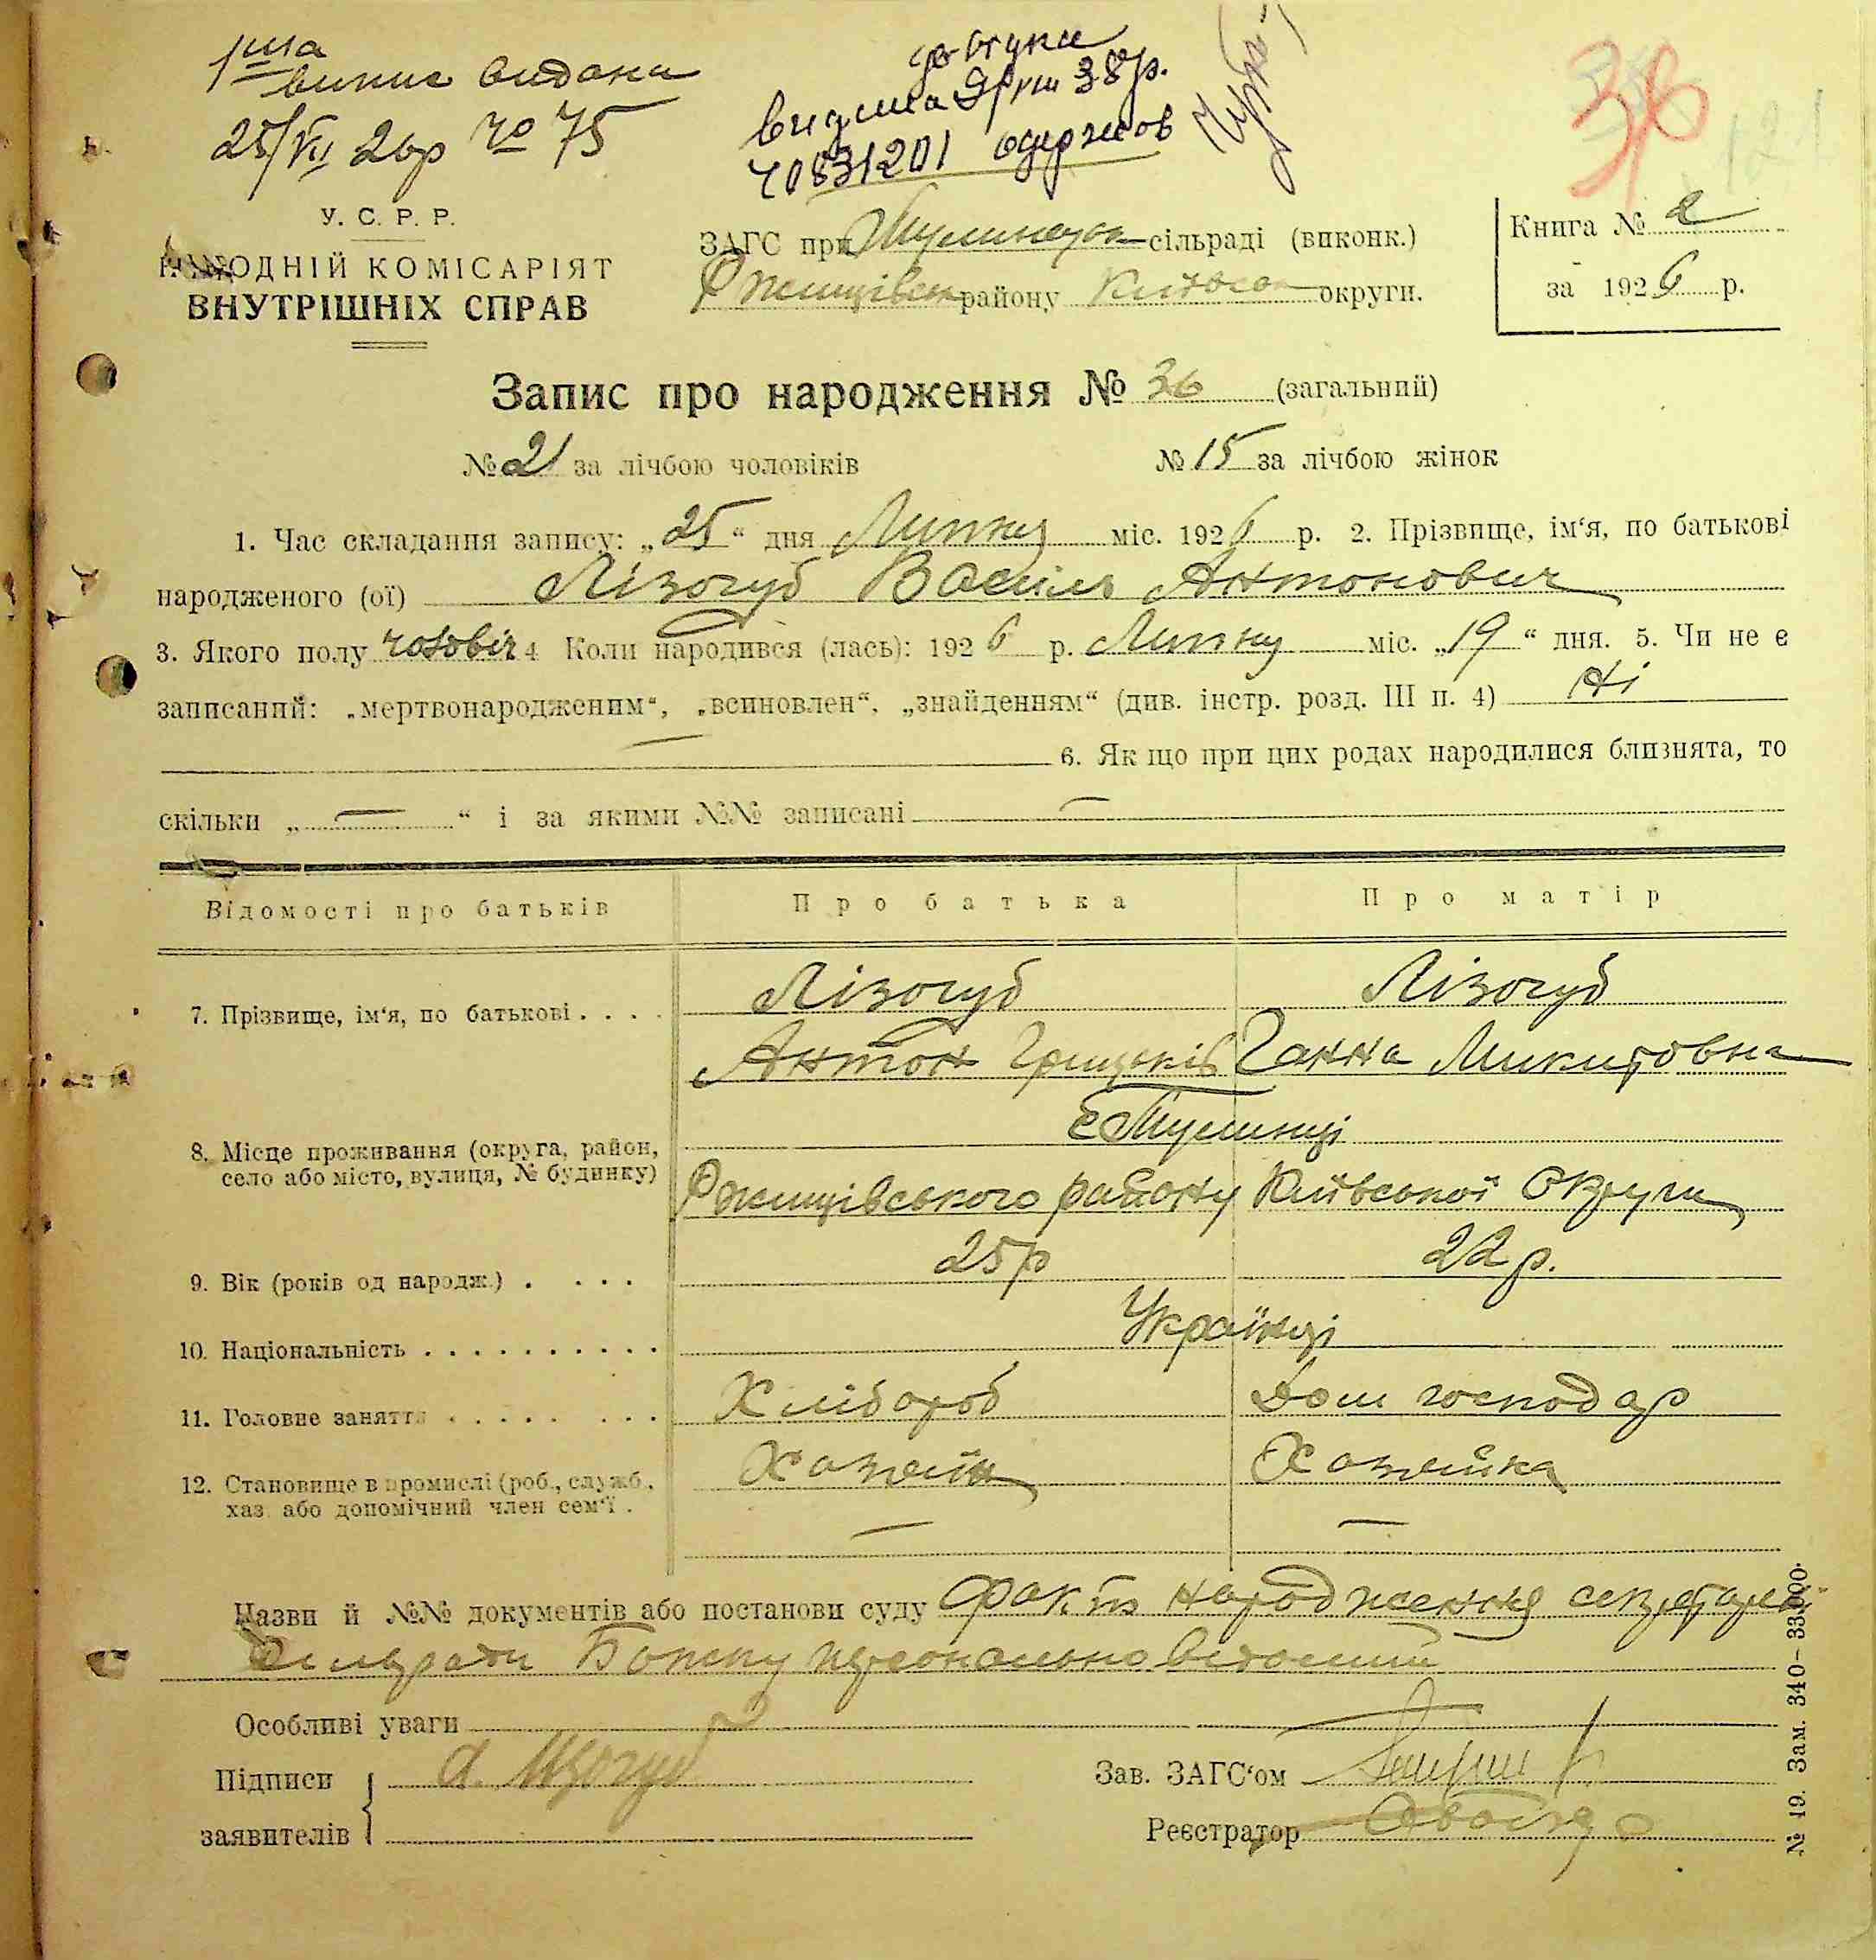 1ша
випис видана
25/VII 26р № 75
видана 38р.
У. С. Р. Р.
НАРОДНІЙ КОМІСАРІЯТ
ВНУТРІШНІХ СПРАВ
36
ЗАГС при сільраді (виконк.)
Ржищівськ району Київськ округи.
Книга № 2
за 1926 р.
Запис про народження № 36 (загальний)
№ 21 за лічбою чоловіків № 15 за лічбою жінок
1. Час складання запису: „25“ дня Липня міс. 1926 р. 2. Прізвище, ім‘я, по батькові
народженого (ої) Лізогуб Василь Антонович
3. Якого полу чоловіч 4 Коли народився (лась): 1926 р. Липню міс. „19“ дня. 5. Чи не є
записаний: „мертвонародженим“, „всиновлен“, „знайденням“ (див. інстр. розд. III п. 4) Ні
— 6. Якщо при цих родах народилися близнята, то
скільки „ — “ і за якими №№ записані —
Відомості про батьків Про батька Про матір
7. Прізвище, ім‘я, по батькові . . . . Лізогуб Лізогуб
Антон Грицьків Ганна Микитовна
8. Місце проживання (округа, район,
село або місто, вулиця, № будинку)
Ржищівського району Київської Округи
9. Вік (років од народж.) . . . . 25р 22р.
10. Національність . . . . . . . . . . Українці
11. Головне заняття . . . . . . . . Хлібороб Дом господар
12. Становище в промислі (роб., служб., Хазяїн Хазяйка
хаз. або допомічний член сем‘ї .
— —
Назви й №№ документів або постанови суду Факт народження секретареві
Сільради персонально відомий
Особливі уваги
Підписи А. Лізогуб Зав. ЗАГС‘ом
заявителів Реєстратор
№ 19. Зам. 340–33.000.